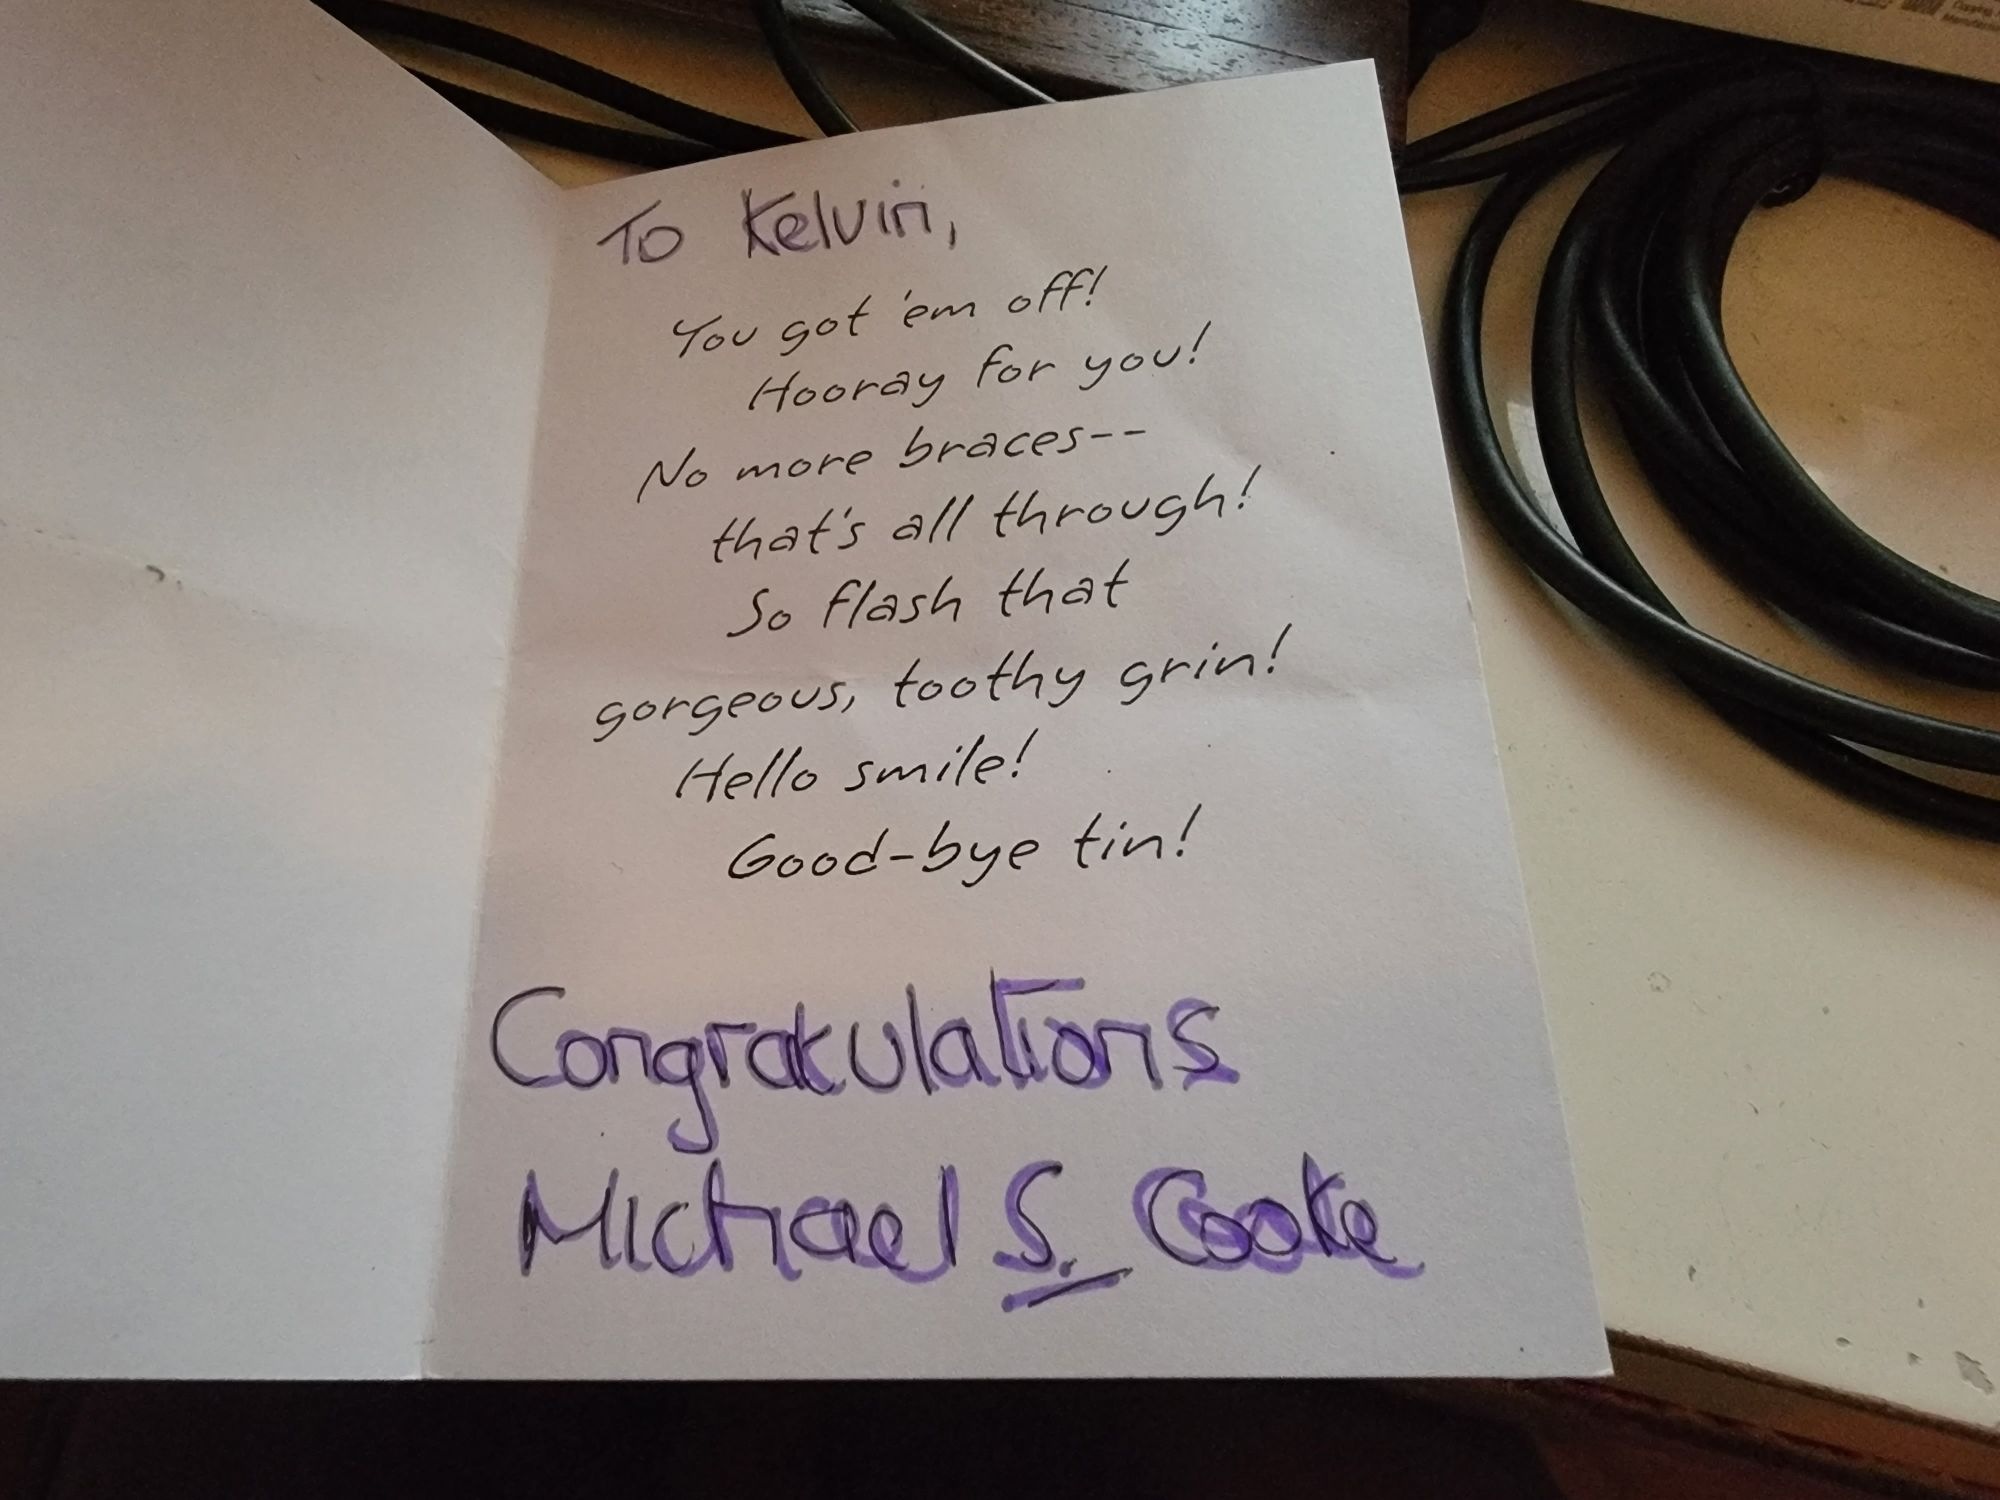 To Kelvin,
You got 'em off!
Hooray for you!
No more braces--
that's all through!
So flash that
gorgeous, toothy grin!
Hello smile!
Good-bye tin!
Congratulations
Michael S. Cooke